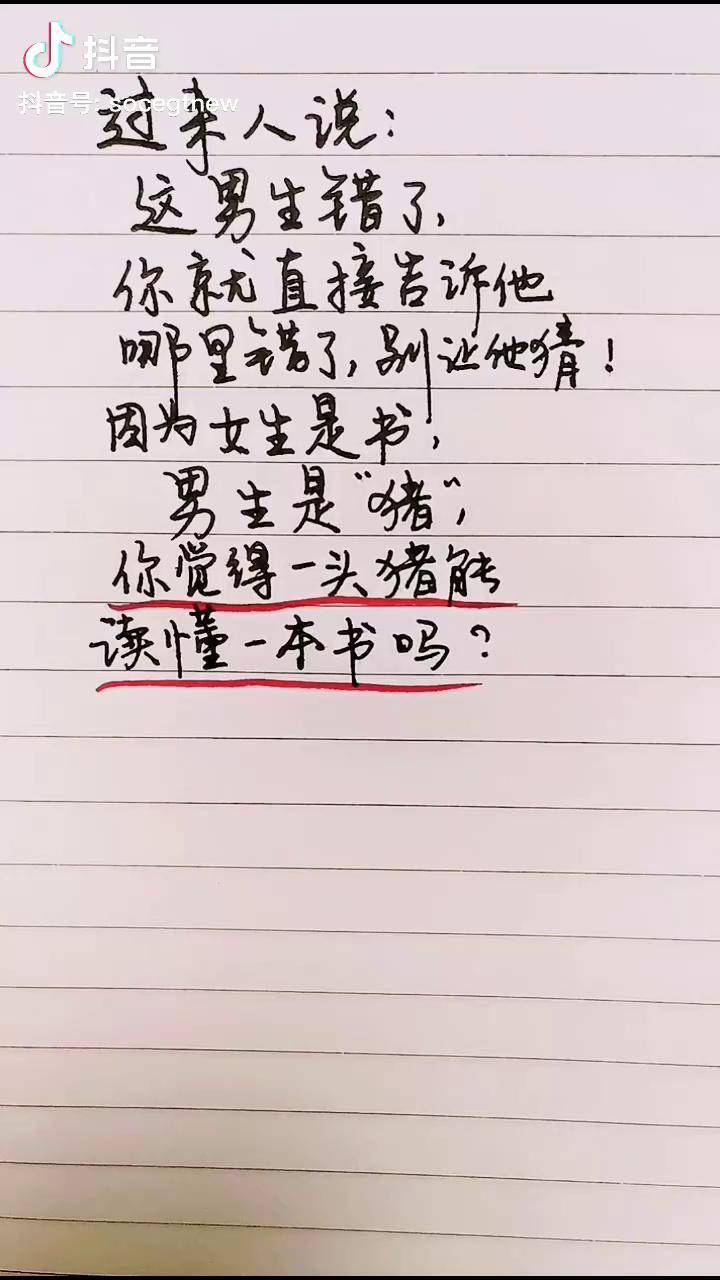 抖音
抖音号: socegthew
过来人说:
这男生错了,
你就直接告诉他
哪里错了,别让他猜!
因为女生是书,
男生是“猪”,
你觉得一头猪能
读懂一本书吗?